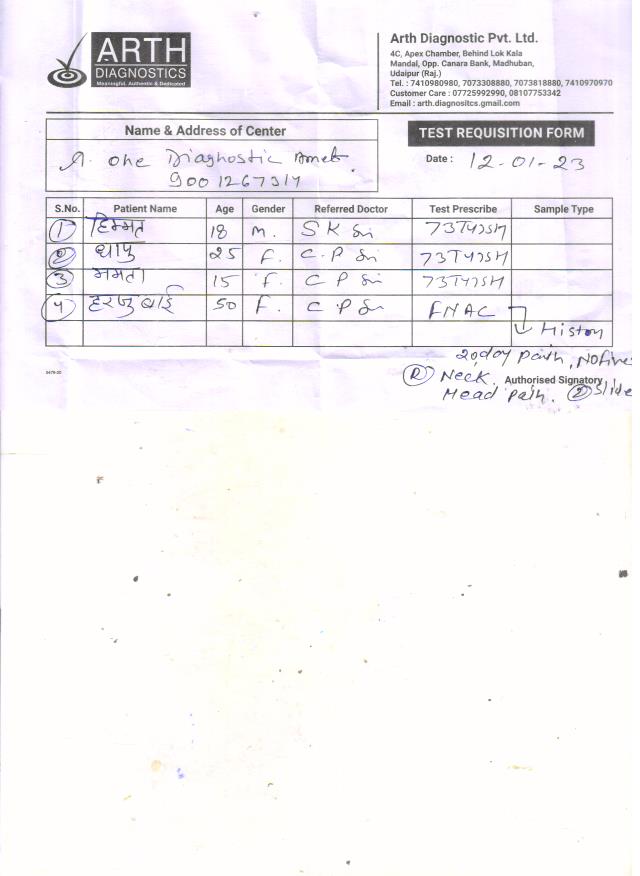 ARTH
DIAGNOSTICS
Meaningful, Authentic & Dedicated
Arth Diagnostic Pvt. Ltd.
4C, Apex Chamber, Behind Lok Kala
Mandal, Opp. Canara Bank, Madhuban,
Udaipur (Raj.)
Tel. : 7410980980, 7073308880, 7073818880, 7410970970
Customer Care : 07725992990, 08107753342
Email : arth.diagnositcs.gmail.com
Name & Address of Center
A. one Diagnostic Amet
9001267317
TEST REQUISITION FORM
Date : 12-01-23
S.No. Patient Name Age Gender Referred Doctor Test Prescribe Sample Type
1 हिम्मत 18 M. S K Sir
2 धापु 25 F. C.P Sir
3 ममता 15 F. C P Sir
4 हरजु बाई 50 F. C P Sir FNAC
History
20 day Path, No fine
R Neck. Authorised Signatory
Mead Path. 2 Slide
5479-20